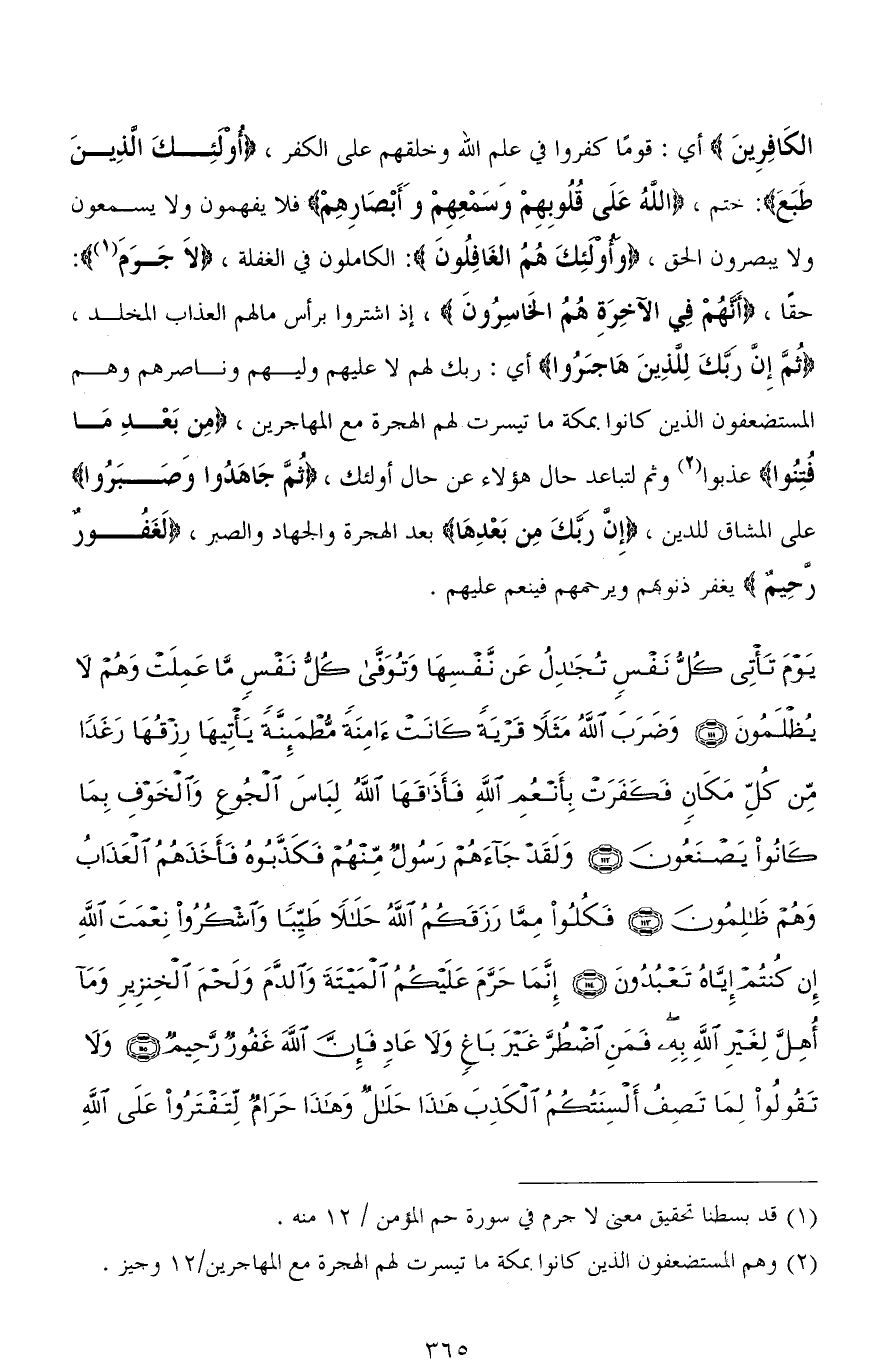 الكَافِرِينَ ﴾ أي : قومًا كفروا في علم الله وخلقهم على الكفر ، ﴿أُوْلَئِــكَ الَّذِيــنَ
طَبَعَ﴾: ختم ، ﴿اللَّهُ عَلَى قُلُوبِهِمْ وَسَمْعِهِمْ وَأَبْصَارِهِمْ﴾ فلا يفهمون ولا يســمعون
ولا يبصرون الحق ، ﴿وَأُوْلَئِكَ هُمُ الغَافِلُونَ ﴾: الكاملون في الغفلة ، ﴿لاَ جَــرَمَ(١)﴾:
حقًا ، ﴿أَنَّهُمْ فِي الآخِرَةِ هُمُ الخَاسِرُونَ ﴾ ، إذ اشتروا برأس مالهم العذاب المخلــد ،
﴿ثُمَّ إِنَّ رَبَّكَ لِلَّذِينَ هَاجَرُوا﴾ أي : ربك لهم لا عليهم وليــهم ونــاصرهم وهــم
المستضعفون الذين كانوا بمكة ما تيسرت لهم الهجرة مع المهاجرين ، ﴿مِن بَعْــدِ مَــا
فُتِنُوا﴾ عذبوا(٢) وثم لتباعد حال هؤلاء عن حال أولئك ، ﴿ثُمَّ جَاهَدُوا وَصَــبَرُوا﴾
على المشاق للدين ، ﴿إِنَّ رَبَّكَ مِن بَعْدِهَا﴾ بعد الهجرة والجهاد والصبر ، ﴿لَغَفُــورٌ
رَّحِيمٌ ﴾ يغفر ذنوبهم ويرحمهم فينعم عليهم .
يَوْمَ تَأْتِى كُلُّ نَفْسٍ تُجَـٰدِلُ عَن نَّفْسِهَا وَتُوَفَّىٰ كُلُّ نَفْسٍ مَّا عَمِلَتْ وَهُمْ لَا
يُظْلَمُونَ ﴿١١١﴾ وَضَرَبَ ٱللَّهُ مَثَلًا قَرْيَةً كَانَتْ ءَامِنَةً مُّطْمَئِنَّةً يَأْتِيهَا رِزْقُهَا رَغَدًا
مِّن كُلِّ مَكَانٍ فَكَفَرَتْ بِأَنْعُمِ ٱللَّهِ فَأَذَٰقَهَا ٱللَّهُ لِبَاسَ ٱلْجُوعِ وَٱلْخَوْفِ بِمَا
كَانُوا۟ يَصْنَعُونَ ﴿١١٢﴾ وَلَقَدْ جَآءَهُمْ رَسُولٌ مِّنْهُمْ فَكَذَّبُوهُ فَأَخَذَهُمُ ٱلْعَذَابُ
وَهُمْ ظَـٰلِمُونَ ﴿١١٣﴾ فَكُلُوا۟ مِمَّا رَزَقَكُمُ ٱللَّهُ حَلَـٰلًا طَيِّبًا وَٱشْكُرُوا۟ نِعْمَتَ ٱللَّهِ
إِن كُنتُمْ إِيَّاهُ تَعْبُدُونَ ﴿١١٤﴾ إِنَّمَا حَرَّمَ عَلَيْكُمُ ٱلْمَيْتَةَ وَٱلدَّمَ وَلَحْمَ ٱلْخِنزِيرِ وَمَآ
أُهِلَّ لِغَيْرِ ٱللَّهِ بِهِۦ فَمَنِ ٱضْطُرَّ غَيْرَ بَاغٍ وَلَا عَادٍ فَإِنَّ ٱللَّهَ غَفُورٌ رَّحِيمٌ ﴿١١٥﴾ وَلَا
تَقُولُوا۟ لِمَا تَصِفُ أَلْسِنَتُكُمُ ٱلْكَذِبَ هَـٰذَا حَلَـٰلٌ وَهَـٰذَا حَرَامٌ لِّتَفْتَرُوا۟ عَلَى ٱللَّهِ
(١) قد بسطنا تحقيق معنى لا جرم في سورة حم المؤمن / ١٢ منه .
(٢) وهم المستضعفون الذين كانوا بمكة ما تيسرت لهم الهجرة مع المهاجرين/١٢ وجيز .
٣٦٥